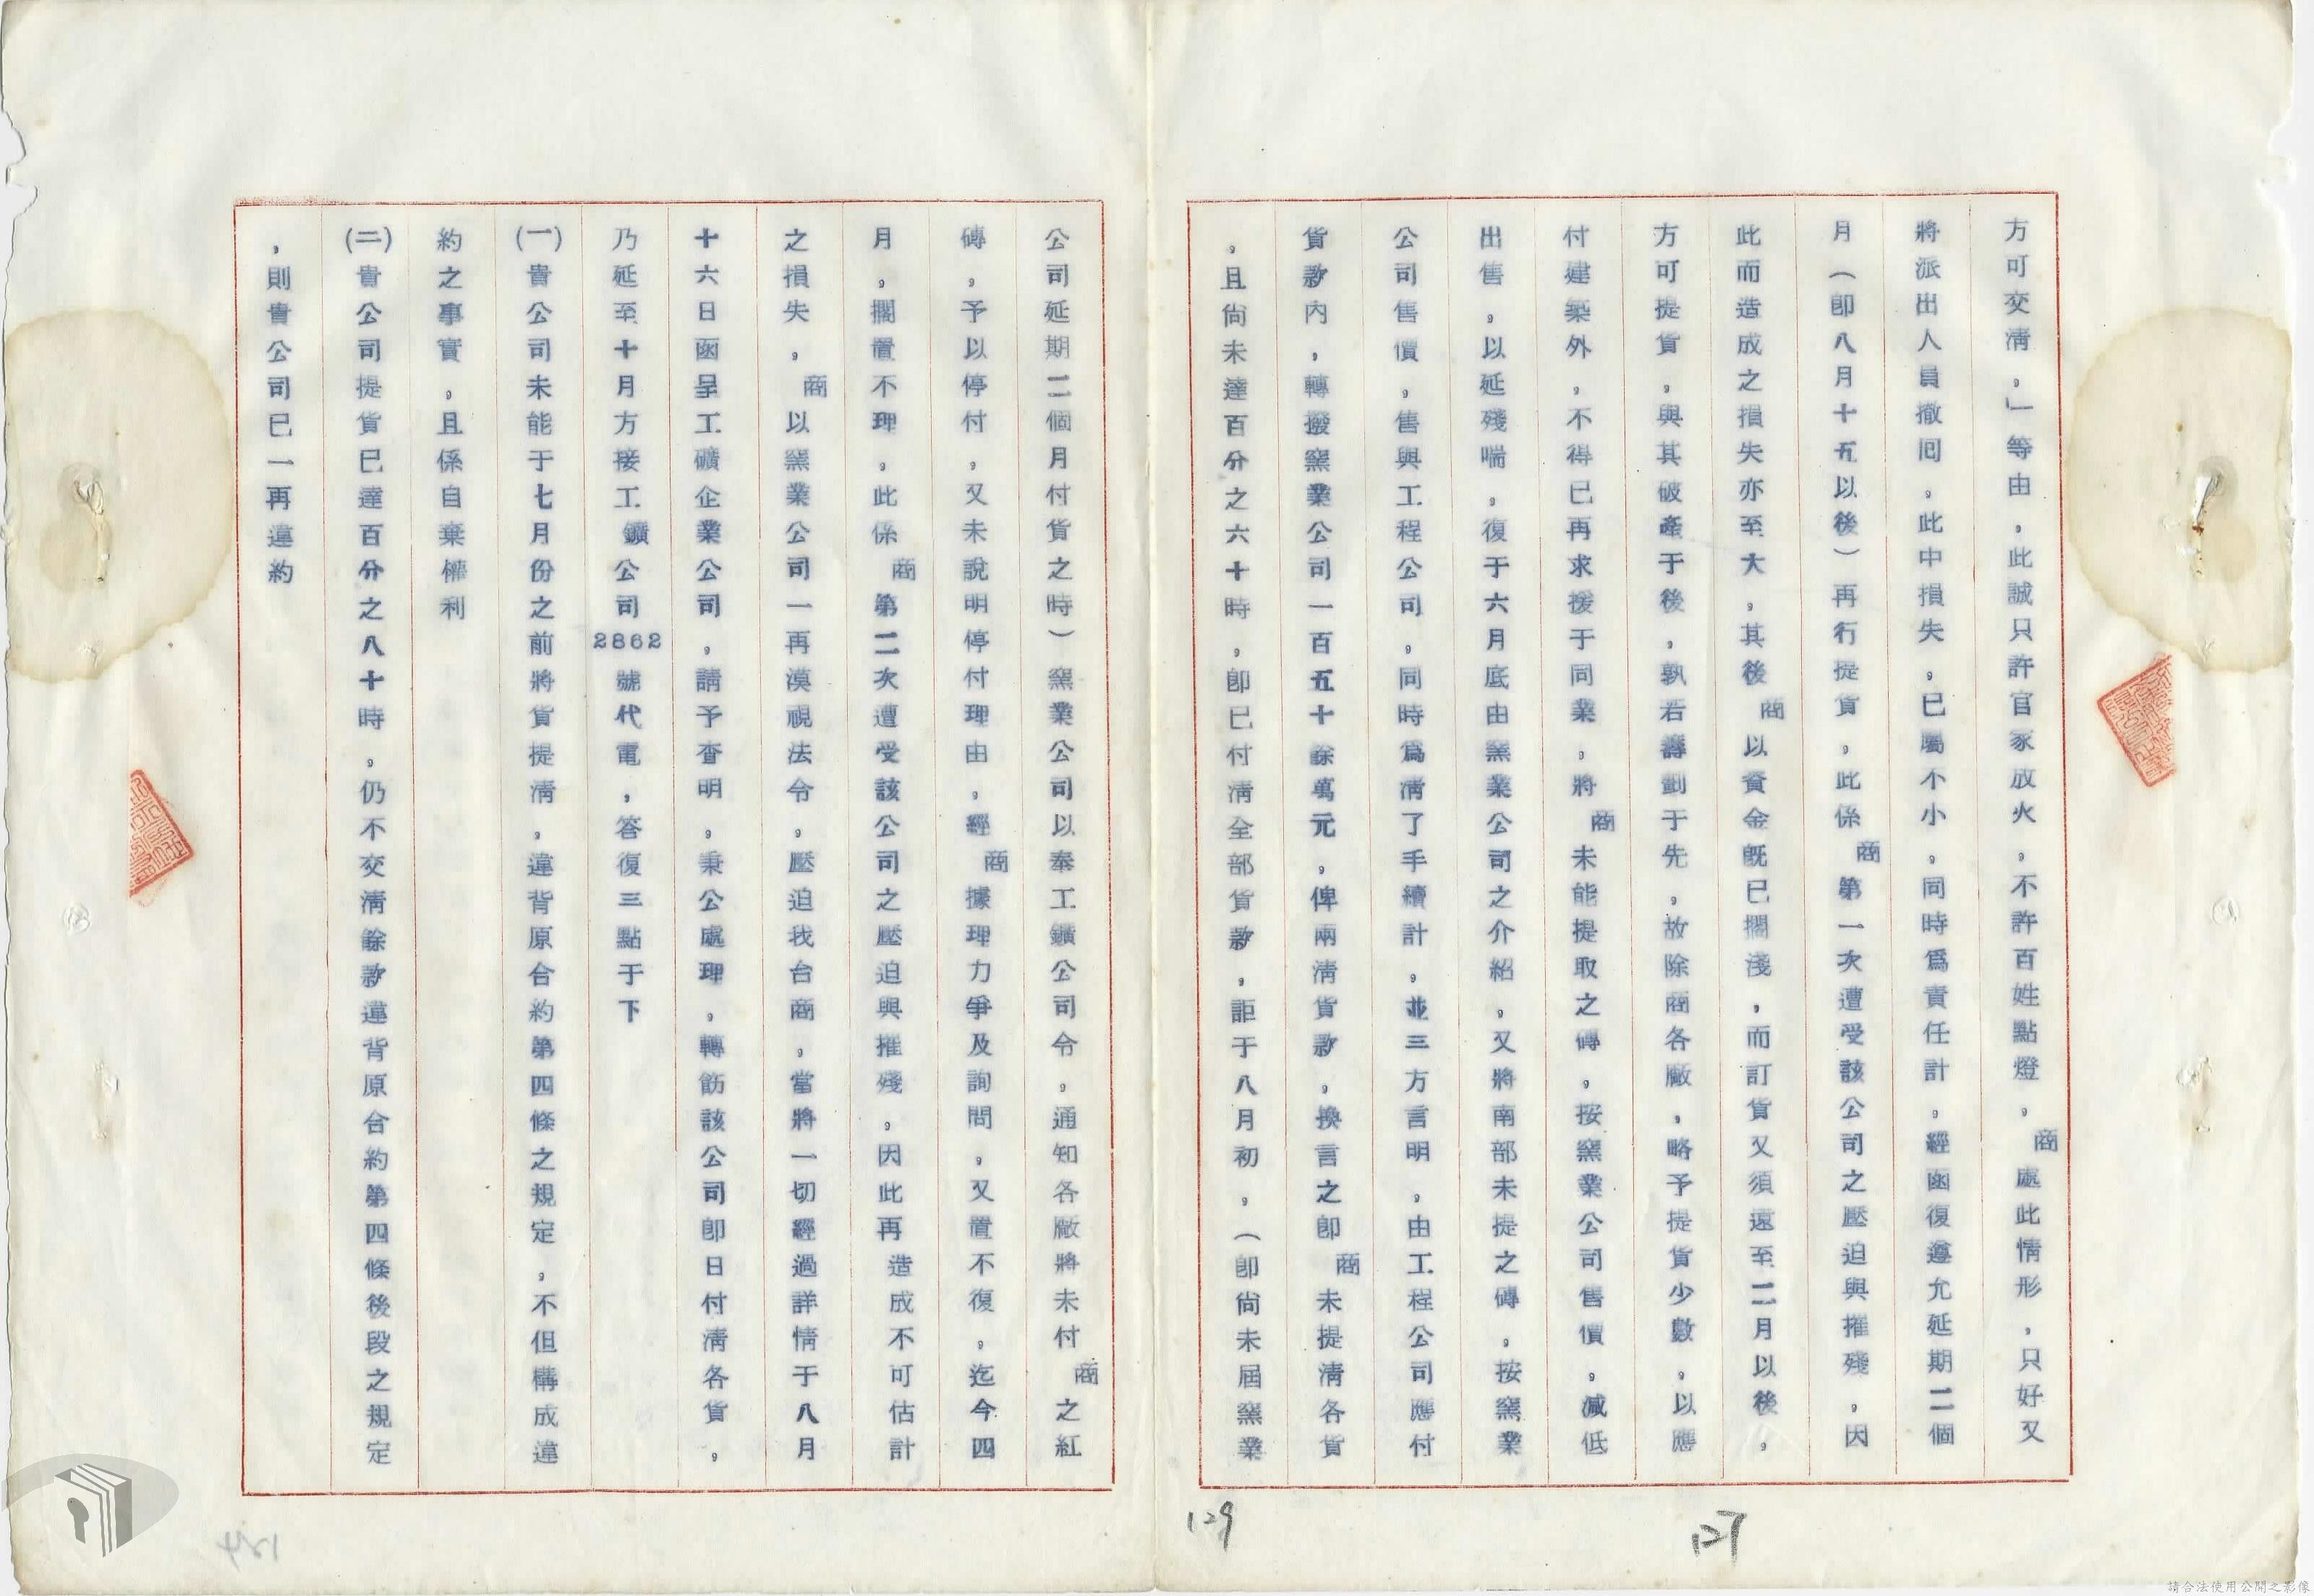 方可交清，」等由，此誠只許官家放火，不許百姓點燈，商處此情形，只好又
將派出人員撤回，此中損失，已屬不小，同時爲責任計，經函復遵允延期二個
月（卽八月十五以後）再行提貨，此係商第一次遭受該公司之壓迫與摧殘，因
此而造成之損失亦至大，其後商以資金旣已擱淺，而訂貨又須遠至二月以後，
方可提貨，與其破產于後，孰若籌劃于先，故除商各廠，略予提貨少數，以應
付建築外，不得已再求援于同業，將商未能提取之磚，按窯業公司售價，減低
出售，以延殘喘，復于六月底由窯業公司之介紹，又將南部未提之磚，按窯業
公司售價，售與工程公司，同時爲清了手續計，並三方言明，由工程公司應付
貨款內，轉撥窯業公司一百五十餘萬元，俾兩清貨款，換言之卽商未提清各貨
，且尚未達百分之六十時，卽已付清全部貨款，詎于八月初，（卽尚未屆窯業
公司延期二個月付貨之時）窯業公司以奉工鑛公司令，通知各廠將未付商之紅
磚，予以停付，又未說明停付理由，經商據理力爭及詢問，又置不復，迄今四
月，擱置不理，此係商第二次遭受該公司之壓迫與摧殘，因此再造成不可估計
之損失，商以窯業公司一再漠視法令，壓迫我台商，當將一切經過詳情于八月
十六日函呈工礦企業公司，請予查明，秉公處理，轉飭該公司卽日付清各貨，
乃延至十月方接工鑛公司2862號代電，答復三點于下
(一)貴公司未能于七月份之前將貨提清，違背原合約第四條之規定，不但構成違
約之事實，且係自棄權利
(二)貴公司提貨已達百分之八十時，仍不交清餘款違背原合約第四條後段之規定
，則貴公司已一再違約
129
127
請合法使用公開之影像